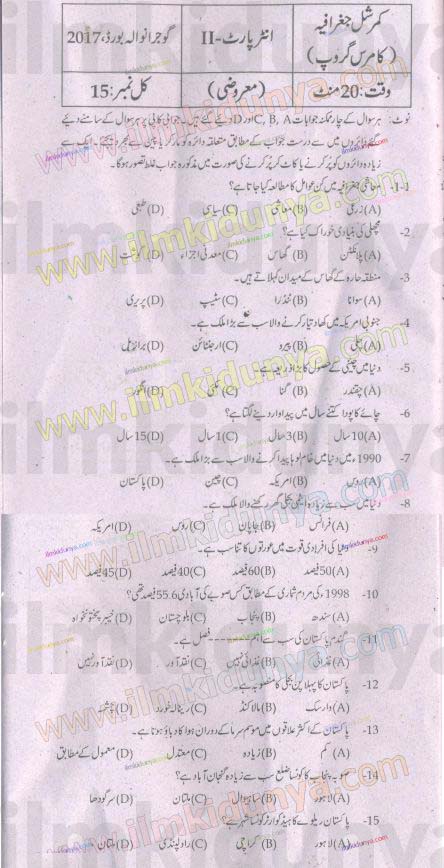 کمرشل جغرافیہ
(کامرس گروپ)
انٹر پارٹ-II
گوجرانوالہ بورڈ،2017
وقت:20منٹ
(معروضی)
کل نمبر:15
نوٹ: ہر سوال کے چار ممکنہ جوابات C, B, A اور D دئیے گئے ہیں۔ جوابی کاپی پر ہر سوال کے سامنے دئیے
گئے دائروں میں سے درست جواب کے مطابق متعلقہ دائرہ کو مارکر یا پین سے بھر دیجئے۔ ایک سے
زیادہ دائروں کو پُر کرنے یا کاٹ کر پُر کرنے کی صورت میں مذکورہ جواب غلط تصور ہوگا۔
1-1- معاشی جغرافیہ میں کن عوامل کا مطالعہ کیا جاتا ہے؟
(A) زرعی (B) معاشی (C) سیاسی (D) طبعی
2- مچھلی کی بنیادی خوراک کیا ہے؟
(A) پلانکٹن (B) گھاس (C) معدنی اجزاء (D) گوشت
3- منطقہ حارہ کے گھاس کے میدان کہلاتے ہیں۔
(A) سوانا (B) ٹنڈرا (C) سٹیپ (D) پریری
4- جنوبی امریکہ میں کھاد تیار کرنے والا سب سے بڑا ملک ہے۔
(A) چلی (B) پیرو (C) ارجنٹائن (D) برازیل
5- دنیا میں چینی کے حصول کا بڑا ذریعہ ہے۔
(A) چقندر (B) گنا (C) مکئی (D) انگور
6- چائے کا پودا کتنے سال میں پیداوار دینے لگتا ہے؟
(A) 10 سال (B) 3 سال (C) 1 سال (D) 15 سال
7- 1990ء میں دنیا میں خام لوہا پیدا کرنے والا سب سے بڑا ملک ہے۔
(A) روس (B) امریکہ (C) چین (D) پاکستان
8- دنیا میں سب سے زیادہ ایٹمی بجلی گھر رکھنے والا ملک ہے۔
(A) فرانس (B) جاپان (C) روس (D) امریکہ
9- دنیا کی افرادی قوت میں عورتوں کا تناسب ہے۔
(A) 50 فیصد (B) 60 فیصد (C) 40 فیصد (D) 45 فیصد
10- 1998ء کی مردم شماری کے مطابق کس صوبے کی آبادی 55.6 فیصد تھی؟
(A) سندھ (B) پنجاب (C) بلوچستان (D) خیبر پختونخواہ
11- گندم پاکستان کی سب سے اہم ------- فصل ہے۔
(A) غذائی (B) غذائی نہیں (C) نقد آور (D) نقد آور نہیں
12- پاکستان کا پہلا پن بجلی کا منصوبہ ہے۔
(A) وارسک (B) مالاکنڈ (C) رینالہ خورد (D) چشمہ
13- پاکستان کے اکثر علاقوں میں موسم سرما کے دوران ہوا کا دباؤ ہوتا ہے۔
(A) کم (B) زیادہ (C) معتدل (D) معمول کے مطابق
14- صوبہ پنجاب کا کونسا ضلع سب سے زیادہ گنجان آباد ہے؟
(A) لاہور (B) ساہیوال (C) ملتان (D) سرگودھا
15- پاکستان ریلوے کا ہیڈ کوارٹر کونسا شہر ہے؟
(A) لاہور (B) کراچی (C) راولپنڈی (D) ملتان
www.ilmkidunya.com